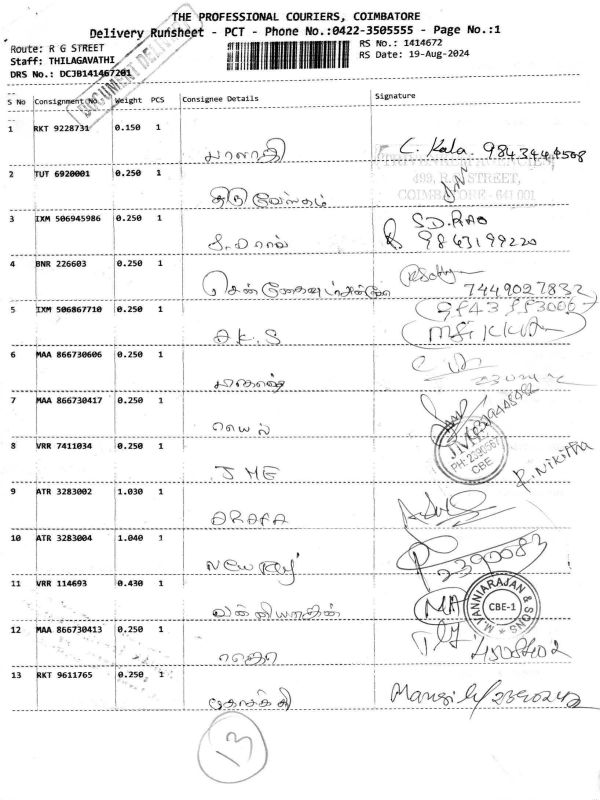 THE PROFESSIONAL COURIERS, COIMBATORE
Delivery Runsheet - PCT - Phone No.:0422-3505555 - Page No.:1
Route: R G STREET
Staff: THILAGAVATHI
DRS No.: DCJB141467201
RS No.: 1414672
RS Date: 19-Aug-2024
DOCUMENT DELIVERED
S No Consignment No Weight PCS Consignee Details Signature
1 RKT 9228731 0.150 1
மாலதி C. Kala. 9843444508
499, R.G STREET,
COIMBATORE - 641 001
2 TUT 6920001 0.250 1
3 IXM 506945986 0.250 1
S.D.RAO
9843199220
4 BNR 226603 0.250 1
7449027832
5 IXM 506867710 0.250 1
A.K.S
6 MAA 866730606 0.250 1
7 MAA 866730417 0.250 1
PH: 2390567
CBE
8 VRR 7411034 0.250 1
JME R. Nikitha
9 ATR 3283002 1.030 1
ARAFA
10 ATR 3283004 1.040 1
New Raj 2390083
11 VRR 114693 0.430 1
வன்னியராஜன்
M.VANNIARAJAN & SONS
CBE-1
12 MAA 866730413 0.250 1
13 RKT 9611765 0.250 1
13